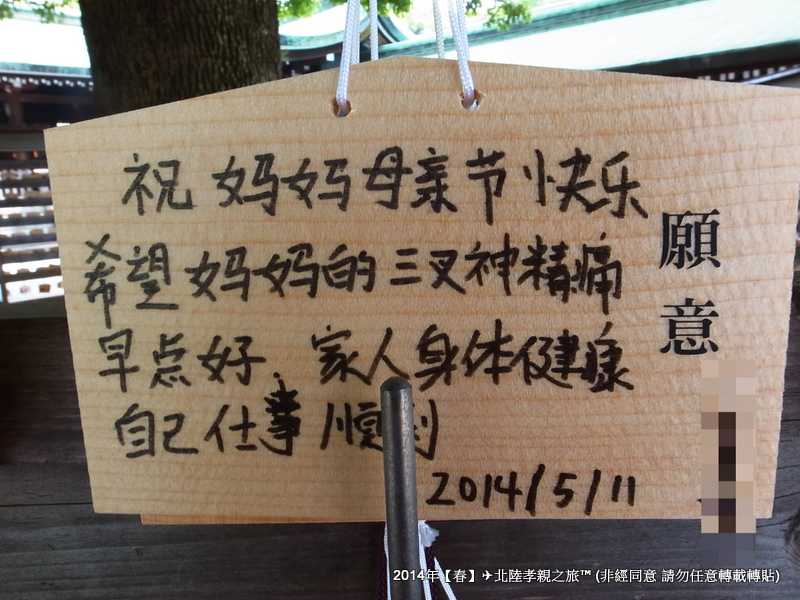 祝 妈妈母亲节快乐
希望妈妈的三叉神精痛
早点好、家人身体健康
自己仕事順利
2014/5/11
願意
2014年【春】✈北陸孝親之旅™ (非經同意 請勿任意轉載轉貼)